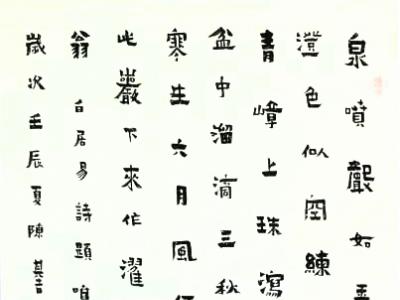 泉噴聲如
澄色似空練
青嶂上珠瀉
盆中溜滴三秋
寒生六月風
此巖下來作濯
翁白居易詩題唯
歲次壬辰夏陳其